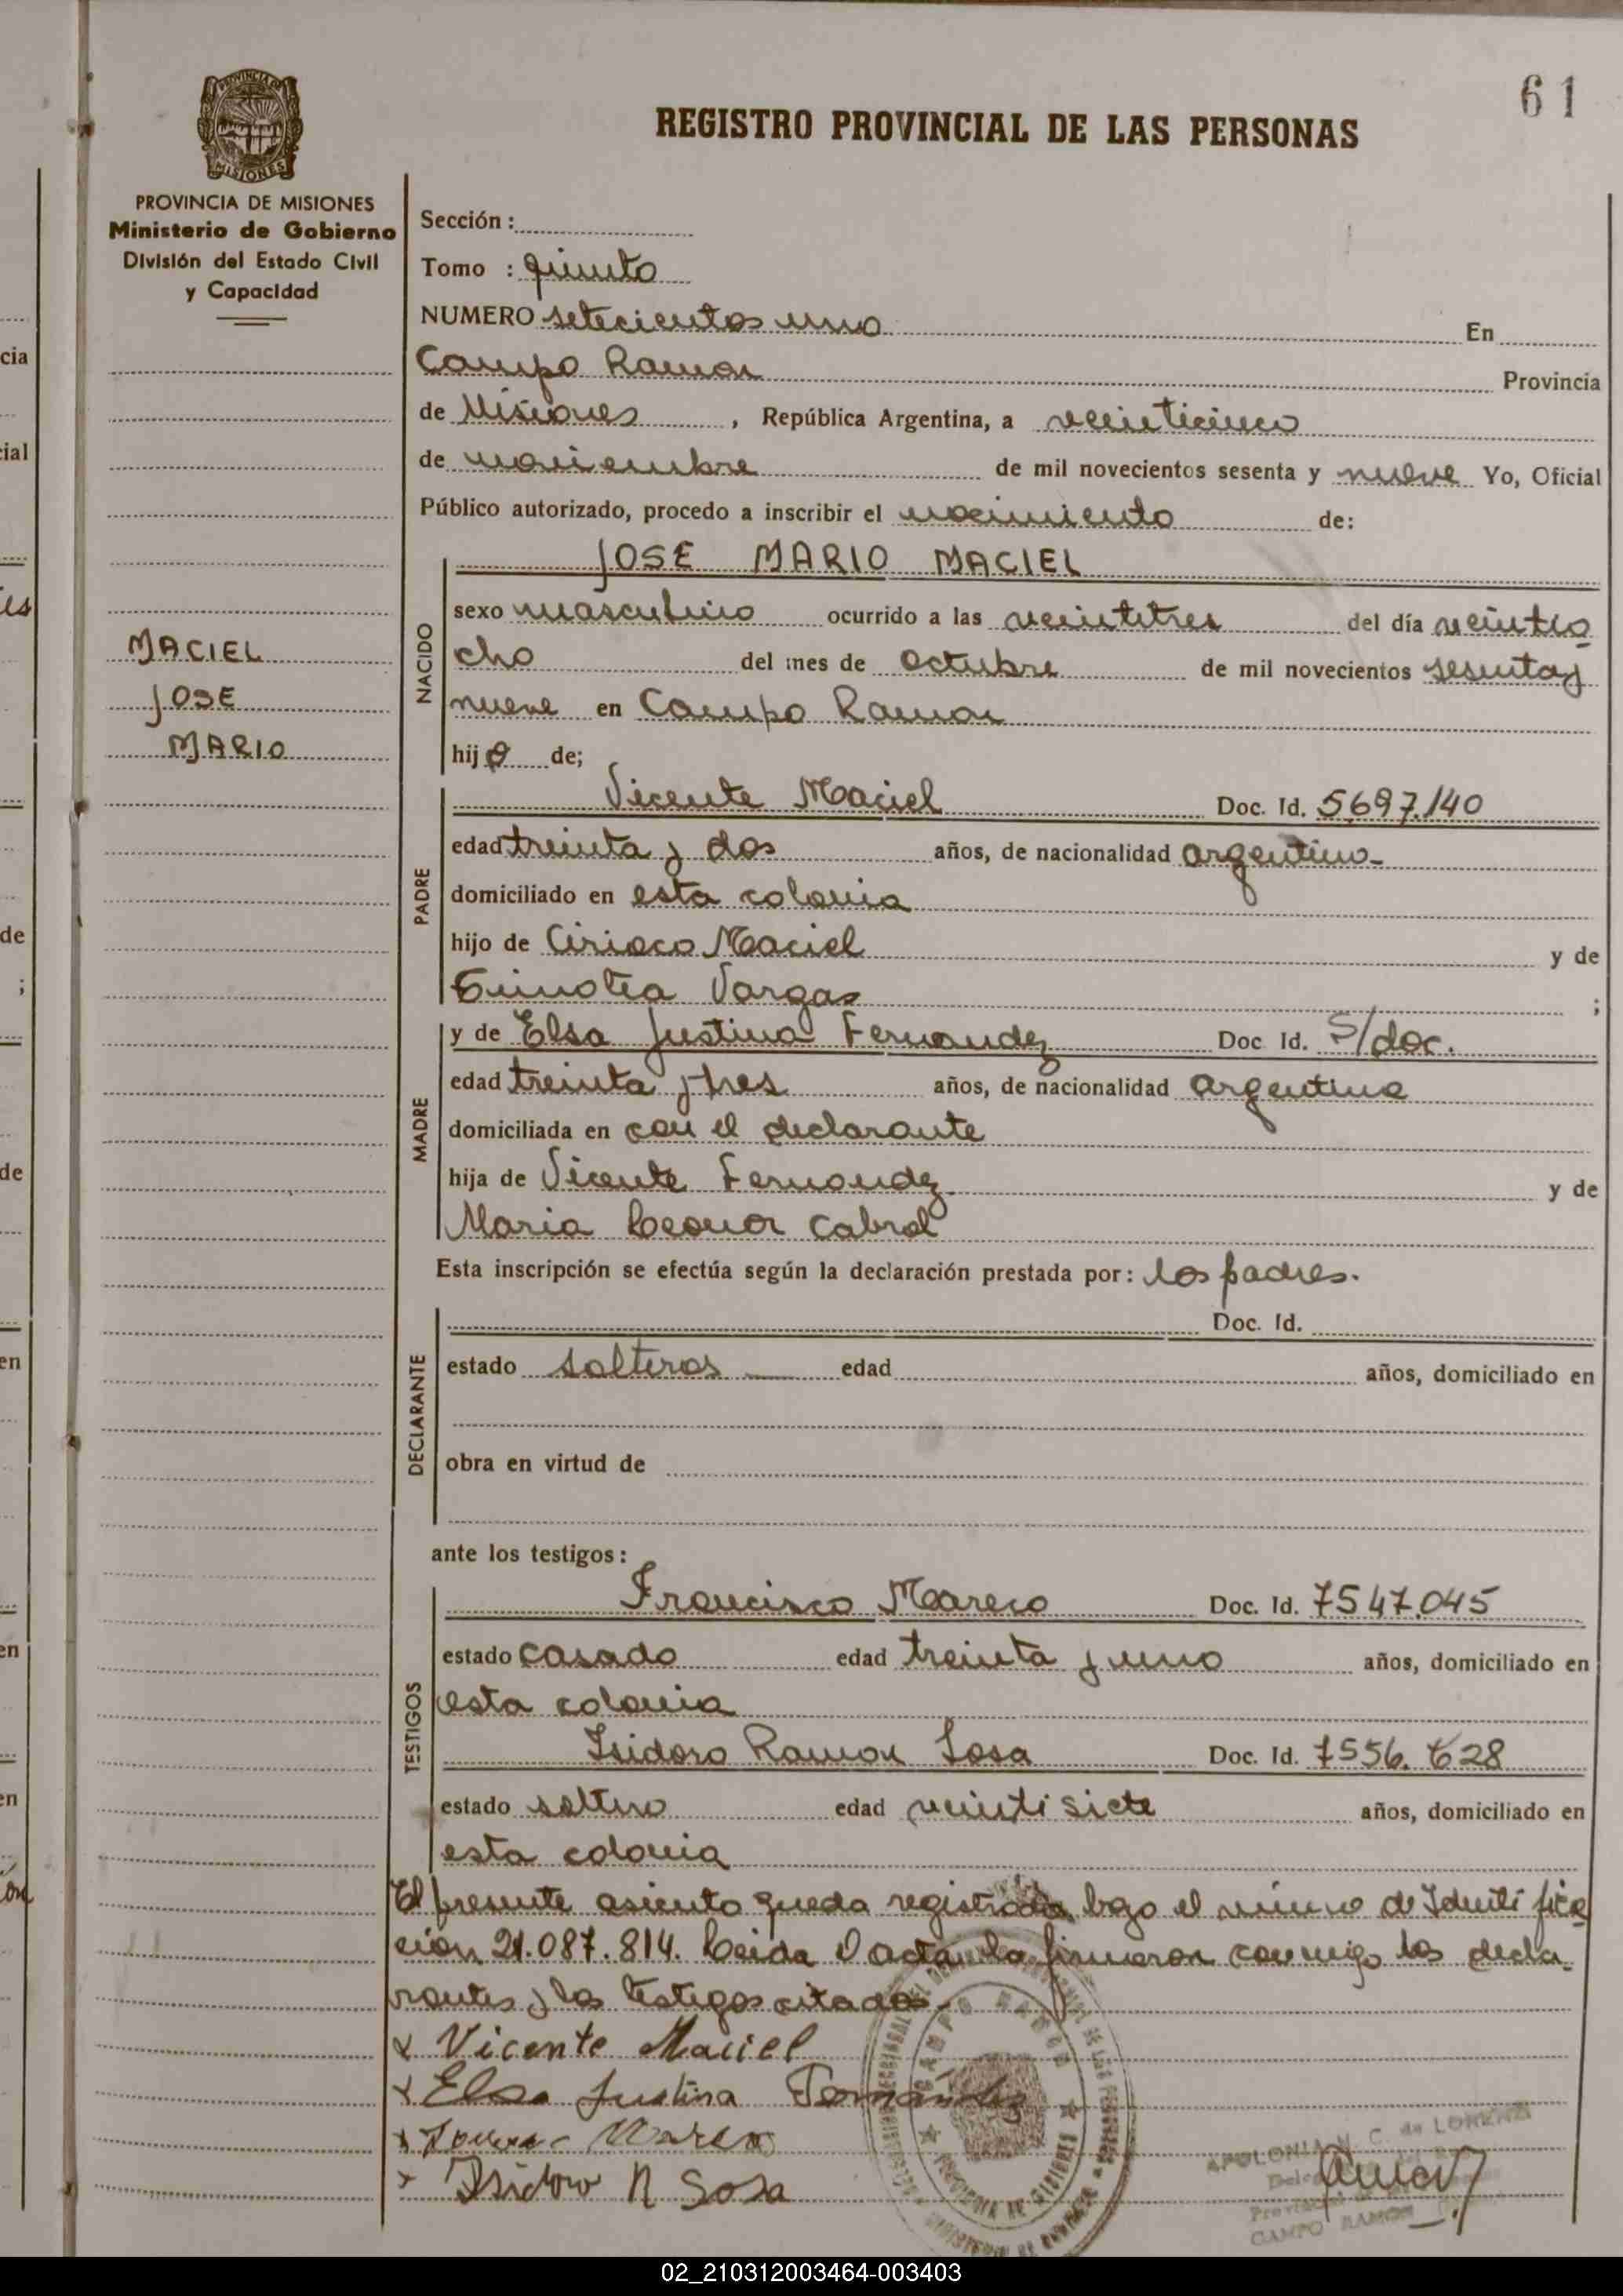 61
REGISTRO PROVINCIAL DE LAS PERSONAS
PROVINCIA DE MISIONES
MISIONES
PROVINCIA DE MISIONES
Ministerio de Gobierno
División del Estado Civil
y Capacidad
MACIEL
JOSE
MARIO
Sección :
Tomo : quinto
NUMERO setecientos uno En
Campo Ramon Provincia
de Misiones , República Argentina, a veinticinco
de noviembre de mil novecientos sesenta y nueve Yo, Oficial
Público autorizado, procedo a inscribir el nacimiento de:
NACIDO
JOSE MARIO MACIEL
sexo masculino ocurrido a las veintitres del día veintio
cho del mes de octubre de mil novecientos sesenta y
nueve en Campo Ramon
hijo de;
PADRE
Vicente Maciel Doc. Id. 5697.140
edad treinta y dos años, de nacionalidad argentino
domiciliado en esta colonia
hijo de Ciriaco Maciel y de
Vargas ;
MADRE
y de Elsa Justina Fernandez Doc Id. S/doc.
edad treinta y tres años, de nacionalidad argentina
domiciliada en con el declarante
hija de Vicente Fernandez y de
Maria Leonor Cabral
Esta inscripción se efectúa según la declaración prestada por: los padres.
DECLARANTE
Doc. Id.
estado solteros edad años, domiciliado en
obra en virtud de
ante los testigos:
TESTIGOS
Francisco Mareco Doc. Id. 7547.045
estado casado edad treinta y uno años, domiciliado en
esta colonia
Isidoro Ramon Sosa Doc. Id. 7556.628
estado soltero edad veinti siete años, domiciliado en
esta colonia
El presente asiento queda registrado bajo el número de Identifica
cion 21.087.814. Leida el acta la firmaron conmigo los decla
rantes y los testigos citados.
x Vicente Maciel
x Elsa Justina Fernández
x Mareco
x Isidoro R Sosa
CAMPO RAMON
PROVINCIA DE MISIONES
APOLONIA C. de LORENZI
CAMPO RAMON
02_210312003464-003403